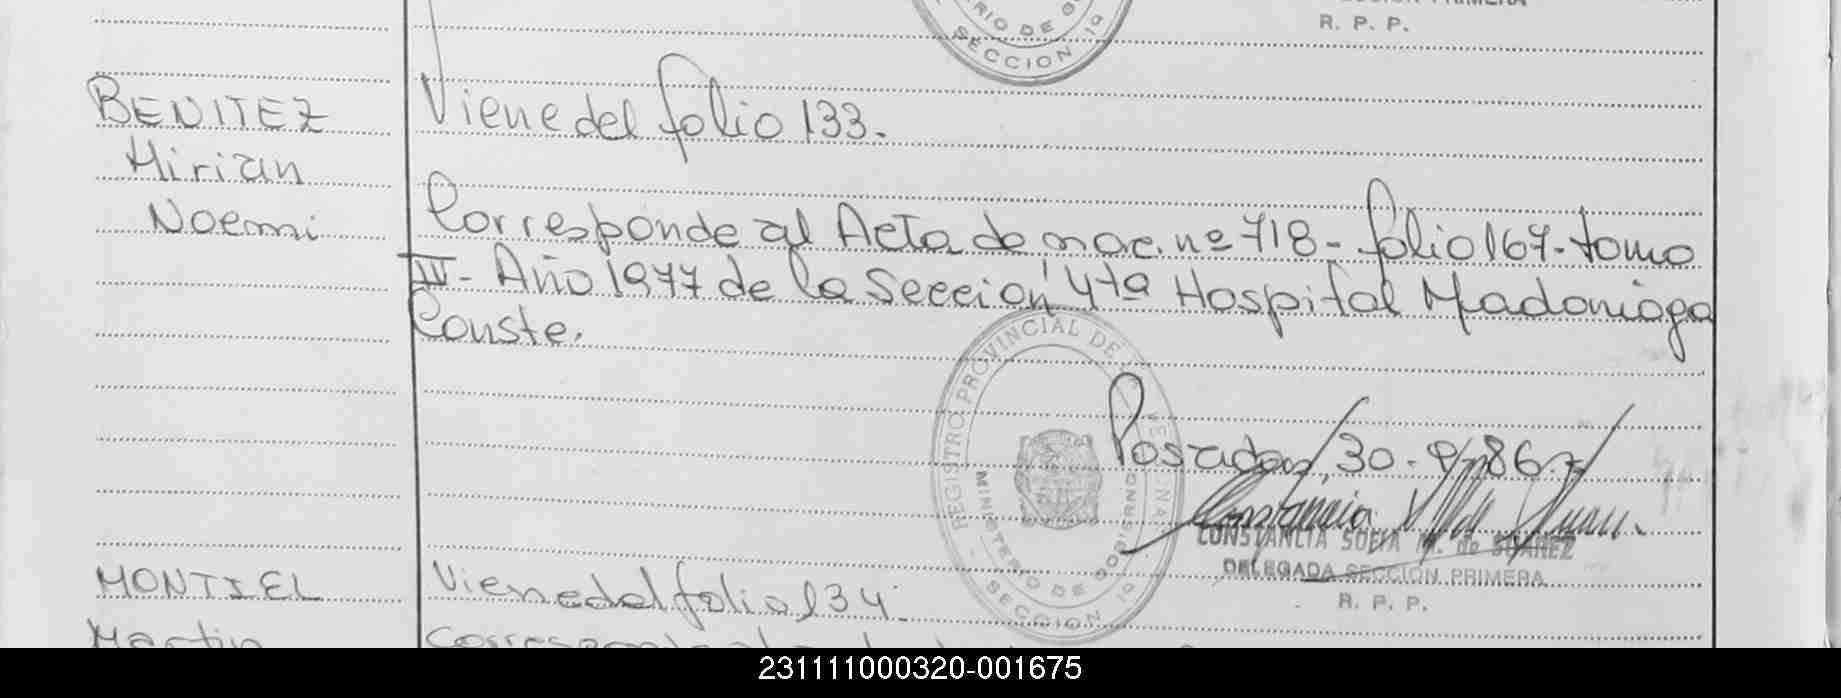 SECCION PRIMERA
R. P. P.
MINISTERIO DE GOBIERNO
SECCION 1ª
BENITEZ
Mirian
Noemi
Viene del folio 133.
Corresponde al Acta de nac. nº 718 - folio 167 - tomo
IV - Año 1977 de la Sección 4ta Hospital Madoniaga
Conste.
REGISTRO PROVINCIAL DE LAS PERSONAS
MINISTERIO DE GOBIERNO
SECCION 1ª
Posadas, 30.9/86.-
CONSTANCIA SOFIA M. de SUAREZ
DELEGADA SECCION PRIMERA
R. P. P.
MONTIEL
Martin
Viene del folio 134.
Corresponde al
231111000320-001675